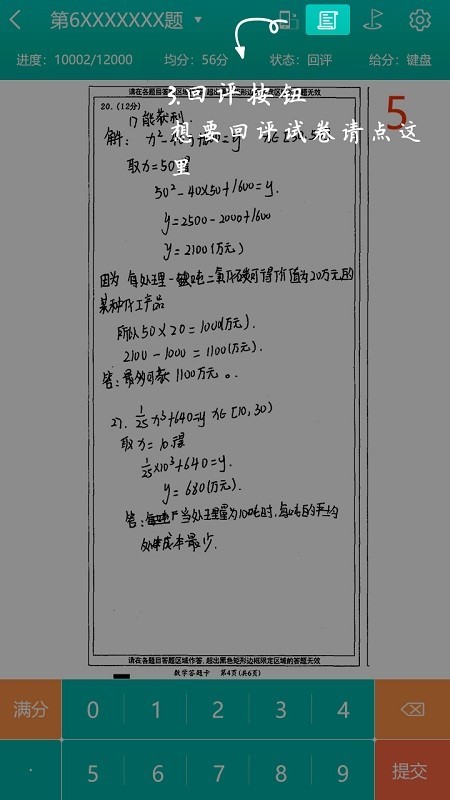 第6XXXXXXX题
进度：10002/12000 均分：56分 状态：回评 给分：键盘
请在各题目答题区域作答，超出黑色矩形边框限定区域的答案无效
20. (12分)
5
3.回评按钮
想要回评试卷请点这
里
取x=50得
50²-40×50+1600=y.
y=2500-2000+1600
y=2100(万元)
因为 每处理一吨二氧化碳可得价值为20万元的
某种化工产品
所以50×20=1000(万元).
2100-1000=1100(万元).
答：最多可获1100万元。
27. 1/25 x³+640=y x∈[10,30)
取x=10.得
1/25×10³+640=y.
y=680(万元).
答：当处理量为100吨时，每吨的平均
处理成本最少.
请在各题目答题区域作答，超出黑色矩形边框限定区域的答案无效
数学答题卡 第4页(共6页)
满分 0 1 2 3 4
· 5 6 7 8 9 提交